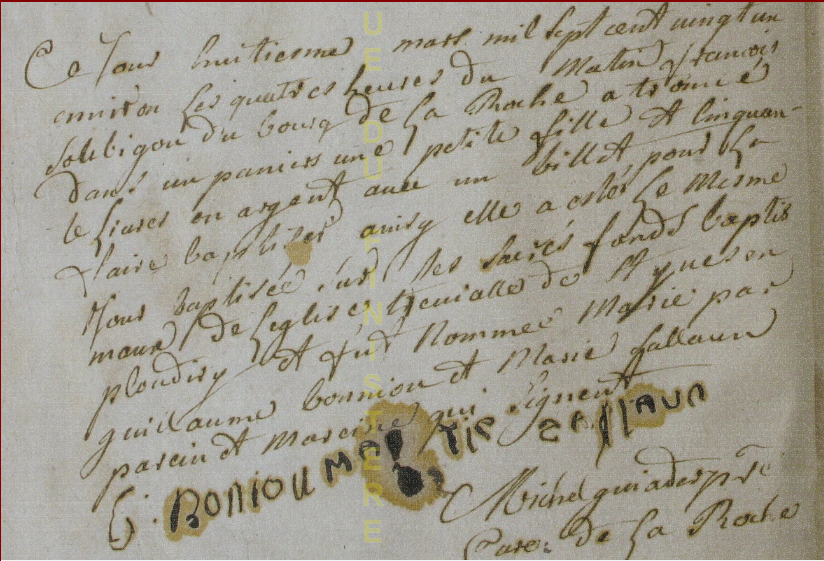 Ce Jour huitiesme mars mil sept cent vingt un
environ les quatres heures du Matin françois
soubigou du bourg de la Roche a trouvé
dans un paniers une petite fille et cinquan-
te livres en argent avec un billet pour la
faire baptiser ainsy elle a estés le mesme
Jour baptisée sur les sacrés fonds baptis
maux de leglise trevialle de
ploudiry et fut Nommee Marie par
guillaume bonniou et Marie fallaun
parein et mareine qui signent
G: BONIOU MARIE FALLAUN
Michel guiader ptre
Curé de la Roche